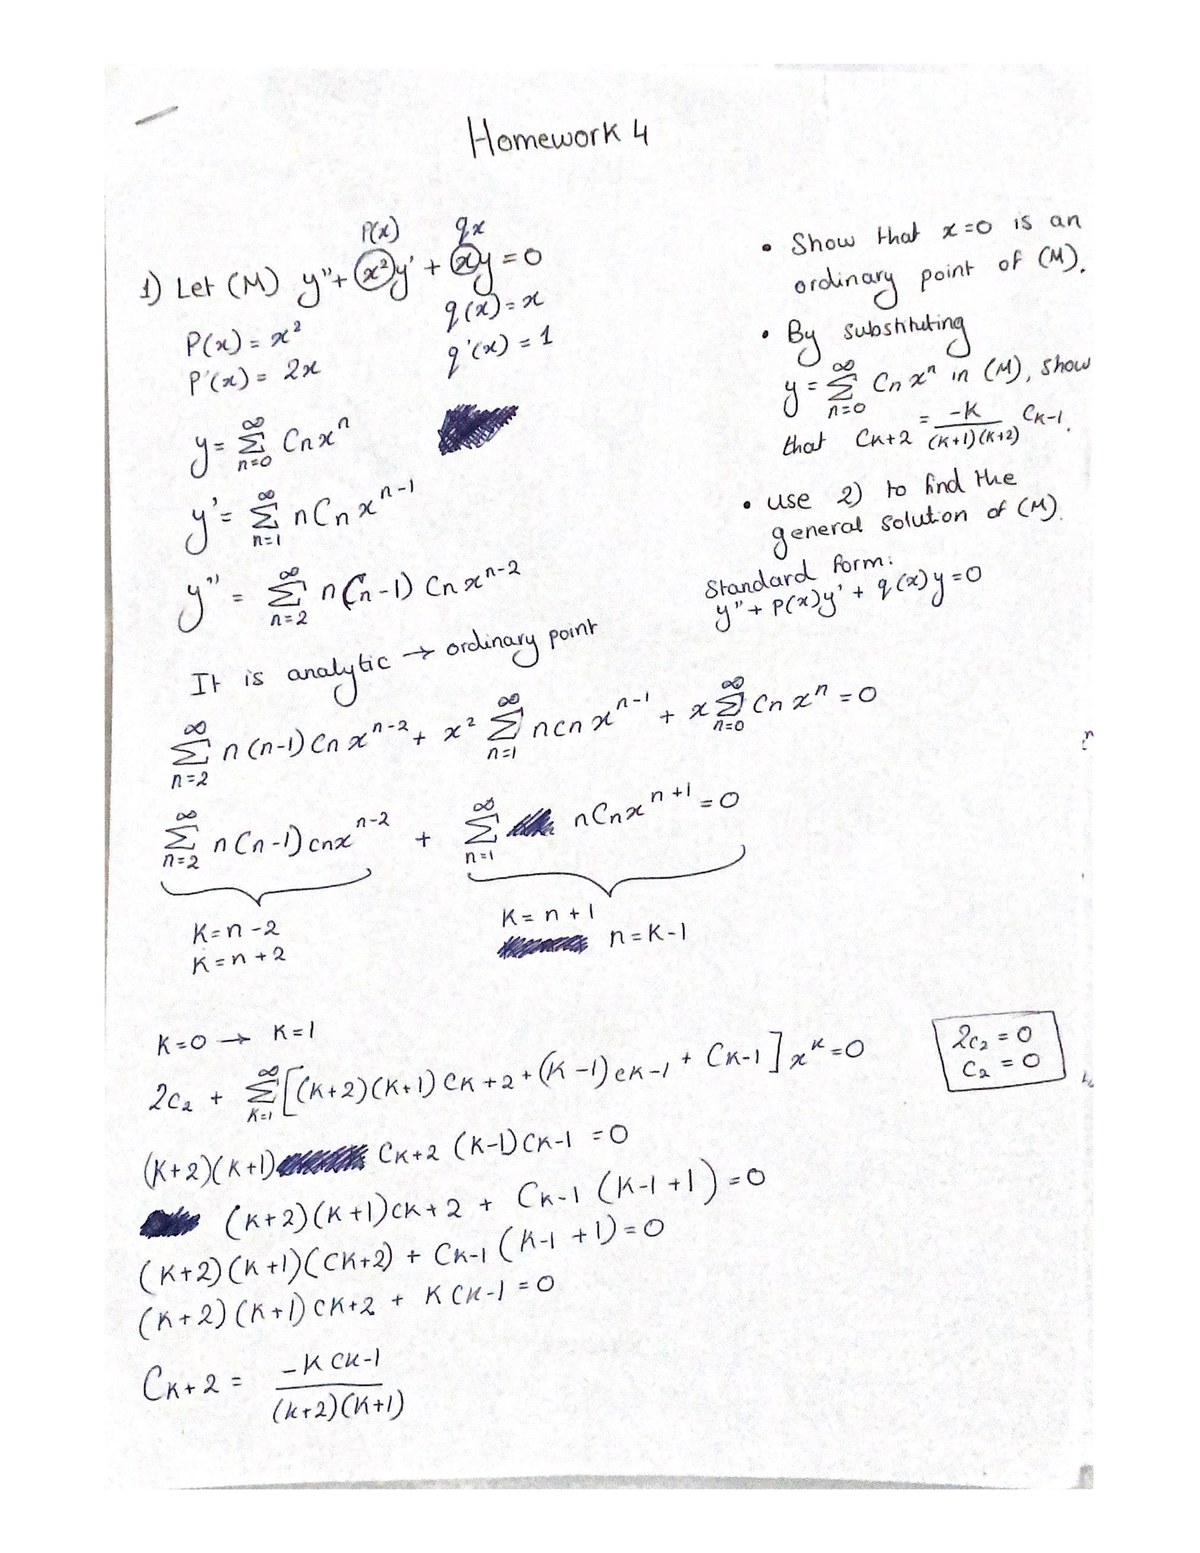 Homework 4
P(x) qx
1) Let (M) y"+ x²y' + xy = 0
P(x) = x² q(x) = x
P'(x) = 2x q'(x) = 1
y = ∞ Σ n=0 Cn xⁿ
y' = ∞ Σ n=1 n Cn x^n-1
y" = ∞ Σ n=2 n(n-1) Cn x^n-2
It is analytic → ordinary point
• Show that x=0 is an
ordinary point of (M).
• By substituting
y = ∞ Σ n=0 Cn xⁿ in (M), show
that CK+2 = -K/(K+1)(K+2) CK-1.
• use 2) to find the
general solution of (M).
Standard form:
y" + P(x)y' + q(x)y = 0
∞ Σ n=2 n(n-1) Cn x^n-2 + x² ∞ Σ n=1 n cn x^n-1 + x ∞ Σ n=0 Cn xⁿ = 0
∞ Σ n=2 n(n-1) cnx^n-2 + ∞ Σ n=1 nCnx^n+1 = 0
K=n-2 K=n+1
K=n+2 n=K-1
K=0 → K=1
2c₂ + ∞ Σ K=1 [(K+2)(K+1) CK+2 + (K-1) cK-1 + CK-1] x^K = 0
2c₂ = 0
C₂ = 0
(K+2)(K+1) CK+2 (K-1) CK-1 = 0
(K+2)(K+1) CK+2 + CK-1 (K-1+1) = 0
(K+2)(K+1)(CK+2) + CK-1 (K-1+1) = 0
(K+2)(K+1) CK+2 + K CK-1 = 0
CK+2 = -K CK-1/(K+2)(K+1)